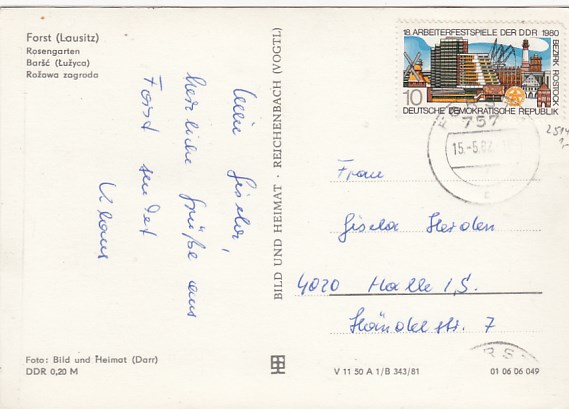 Forst (Lausitz)
Rosengarten
Baršć (Łužyca)
Rožowa zagroda
Gisela!
herzliche Grüße aus
Forst sendet
Klaus
BILD UND HEIMAT · REICHENBACH (VOGTL)
18. ARBEITERFESTSPIELE DER DDR 1980
BEZIRK ROSTOCK
10
DEUTSCHE DEMOKRATISCHE REPUBLIK
757
15.-5.82
c
2514
Frau
Gisela
4020 Halle /S.
Händelstr. 7
RST
Foto: Bild und Heimat (Darr)
DDR 0,20 M
V 11 50 A 1/B 343/81
01 06 06 049